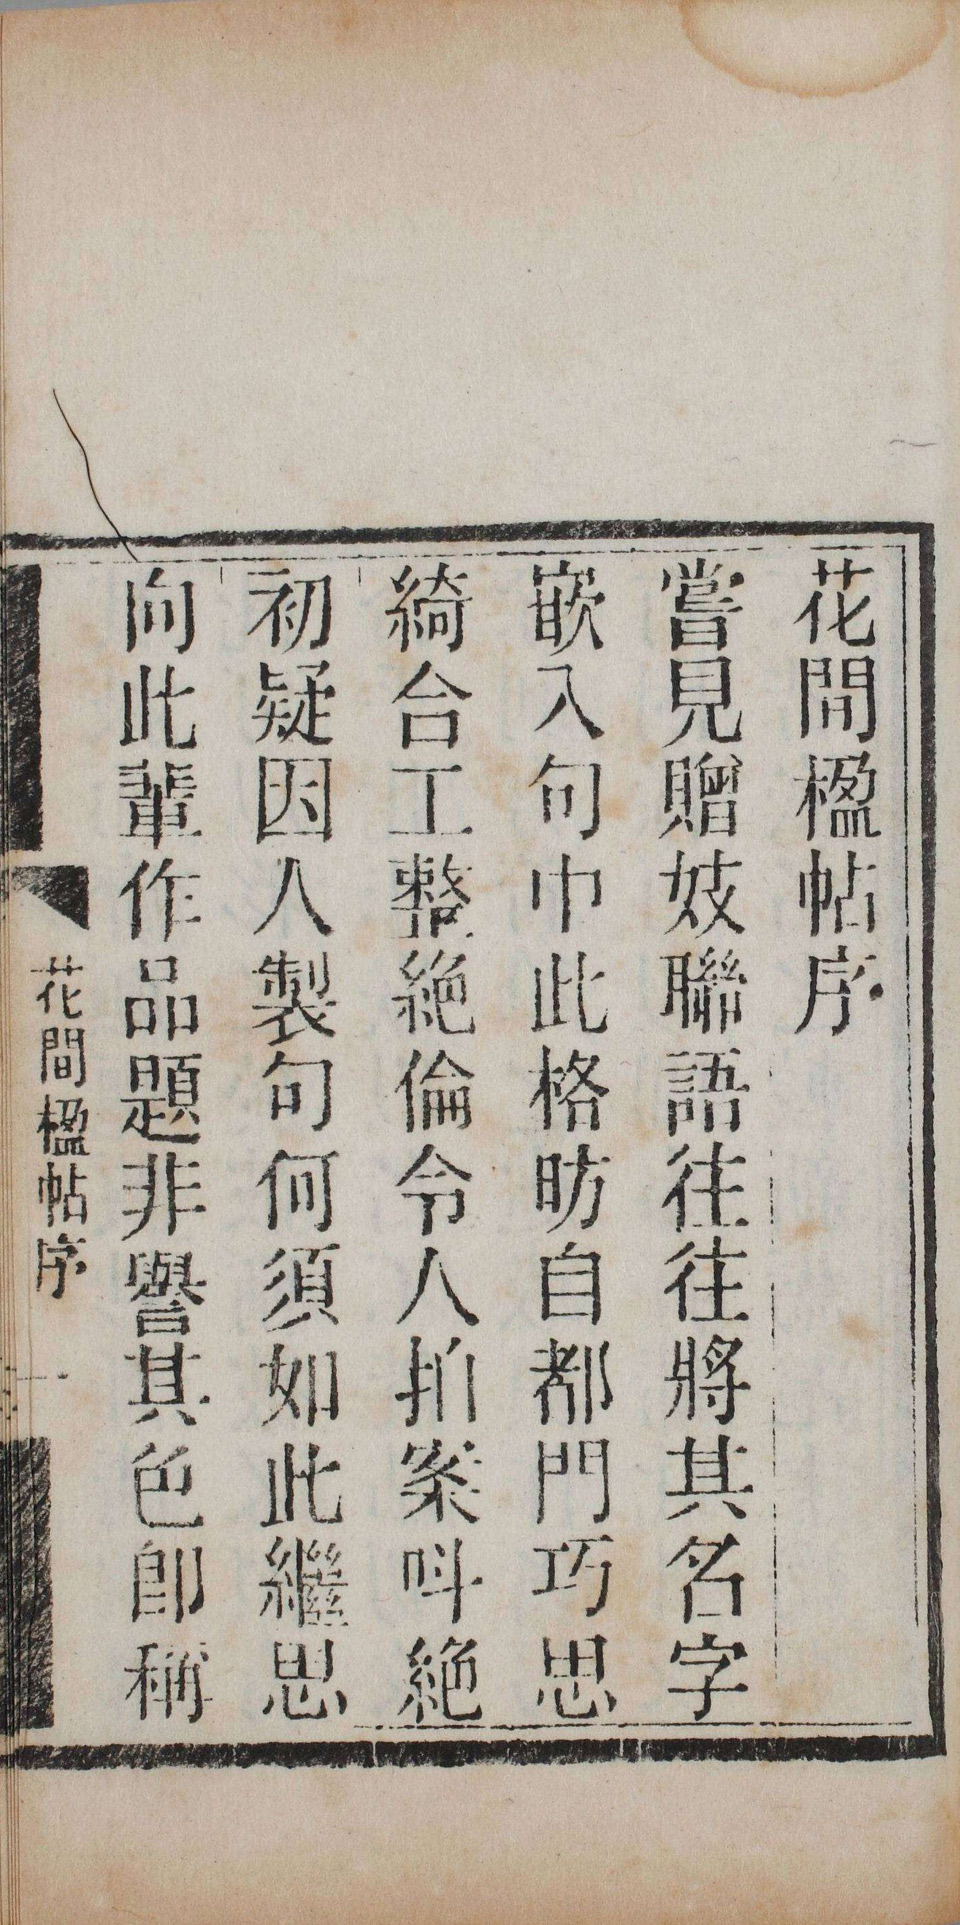 花間楹帖序
嘗見贈妓聯語往往將其名字
嵌入句中此格昉自都門巧思
綺合工整絶倫令人拍案呌絶
初疑因人製句何須如此繼思
向此輩作品題非譽其色卽稱
花間楹帖序
一